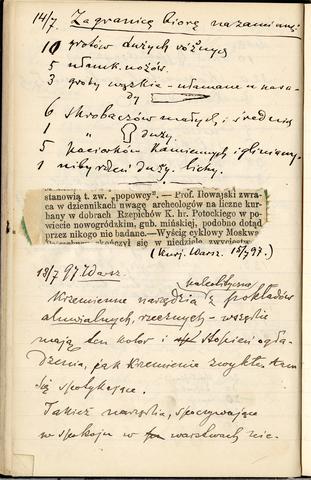 14/7. Zagranicę biorę na zamianę:
10 grotów dużych różnych
5 ułamk. nożów.
3 groty wąskie – ułamane u nasady
6 skrobaczów małych i średnich
1 " duży.
5 paciorków kamiennych i glinian.
1 niby rdzeń duży. lichy.
stanowią t. zw. „popowcy". — Prof. Iłowajski zwra-
ca w dziennikach uwagę archeologów na liczne kur-
hany w dobrach Rzepichów K. hr. Potockiego w po-
wiecie nowogródzkim, gub. mińskiej, podobno dotąd
przez nikogo nie badane.—Wyścig cyklowy Moskwa
skończył się w niedzielę
(Kurj. Warsz. 15/7 97.)
18/7 97 Warsz.
paleolityczne
Krzemienne narzędzia z pokładów
aluwialnych, rzecznych – wszędzie
mają ten kolor i stopień ogła-
dzenia, jak krzemienie zwykłe tam
się spotykające.
Takież narzędzia, spoczywające
w spokoju w warstwach nie-